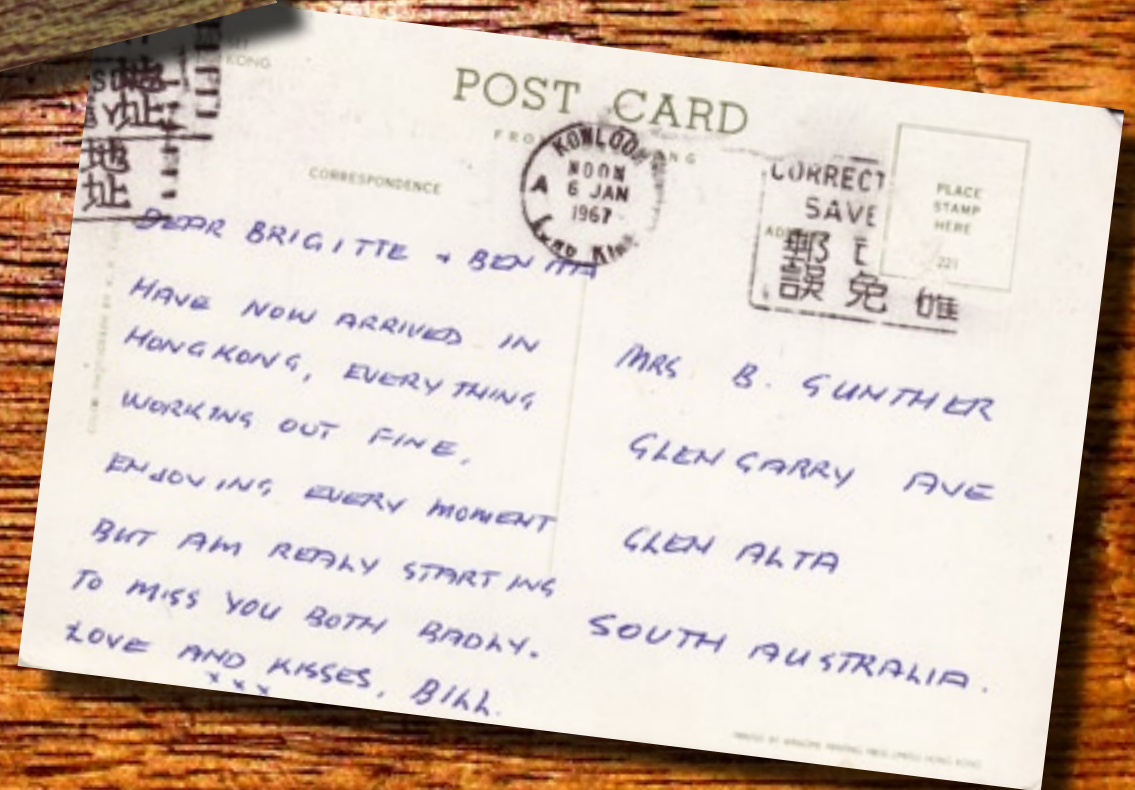 KONG
POST CARD
CORRESPONDENCE
地
址
地
址
KOWLOON
NOON
A 6 JAN
1967
CORRECT
SAVE
郵
誤 免
PLACE
STAMP
HERE
221
DEAR BRIGITTE +
HAVE NOW ARRIVED IN
HONGKONG, EVERYTHING
WORKING OUT FINE,
ENJOYING EVERY MOMENT
BUT AM REALY STARTING
TO MISS YOU BOTH BADLY.
LOVE AND KISSES, BILL.
x x x
MRS B. GUNTHER
GLENGARRY AVE
GLEN ALTA
SOUTH AUSTRALIA.